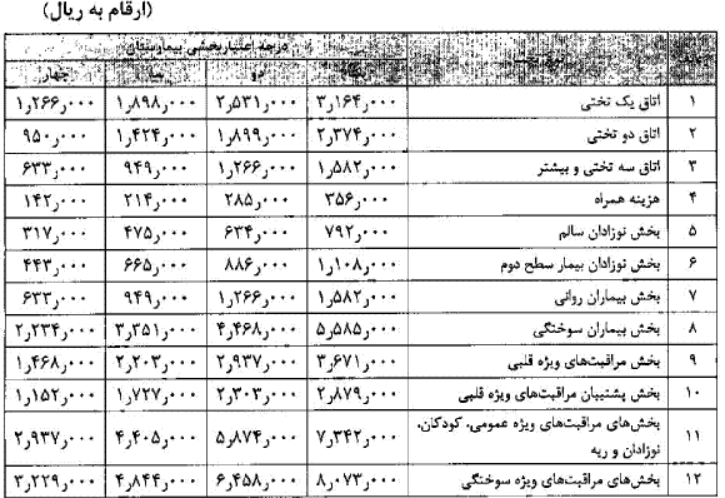 (ارقام به ریال)
درجه اعتباربخشی بیمارستان
دو
چهار
۱ اتاق یک تختی ۳٫۱۶۴٫۰۰۰ ۲٫۵۳۱٫۰۰۰ ۱٫۸۹۸٫۰۰۰ ۱٫۲۶۶٫۰۰۰
۲ اتاق دو تختی ۲٫۳۷۴٫۰۰۰ ۱٫۸۹۹٫۰۰۰ ۱٫۴۲۴٫۰۰۰ ۹۵۰٫۰۰۰
۳ اتاق سه تختی و بیشتر ۱٫۵۸۲٫۰۰۰ ۱٫۲۶۶٫۰۰۰ ۹۴۹٫۰۰۰ ۶۳۳٫۰۰۰
۴ هزینه همراه ۳۵۶٫۰۰۰ ۲۸۵٫۰۰۰ ۲۱۴٫۰۰۰ ۱۴۲٫۰۰۰
۵ بخش نوزادان سالم ۷۹۲٫۰۰۰ ۶۳۴٫۰۰۰ ۴۷۵٫۰۰۰ ۳۱۷٫۰۰۰
۶ بخش نوزادان بیمار سطح دوم ۱٫۱۰۸٫۰۰۰ ۸۸۶٫۰۰۰ ۶۶۵٫۰۰۰ ۴۴۳٫۰۰۰
۷ بخش بیماران روانی ۱٫۵۸۲٫۰۰۰ ۱٫۲۶۶٫۰۰۰ ۹۴۹٫۰۰۰ ۶۳۳٫۰۰۰
۸ بخش بیماران سوختگی ۵٫۵۸۵٫۰۰۰ ۴٫۴۶۸٫۰۰۰ ۳٫۳۵۱٫۰۰۰ ۲٫۲۳۴٫۰۰۰
۹ بخش مراقبت‌های ویژه قلبی ۳٫۶۷۱٫۰۰۰ ۲٫۹۳۷٫۰۰۰ ۲٫۲۰۳٫۰۰۰ ۱٫۴۶۸٫۰۰۰
۱۰ بخش پشتیبان مراقبت‌های ویژه قلبی ۲٫۸۷۹٫۰۰۰ ۲٫۳۰۳٫۰۰۰ ۱٫۷۲۷٫۰۰۰ ۱٫۱۵۲٫۰۰۰
۱۱ بخش‌های مراقبت‌های ویژه عمومی، کودکان، ۷٫۳۴۲٫۰۰۰ ۵٫۸۷۴٫۰۰۰ ۴٫۴۰۵٫۰۰۰ ۲٫۹۳۷٫۰۰۰
نوزادان و ریه
۱۲ بخش‌های مراقبت‌های ویژه سوختگی ۸٫۰۷۳٫۰۰۰ ۶٫۴۵۸٫۰۰۰ ۴٫۸۴۴٫۰۰۰ ۳٫۲۲۹٫۰۰۰